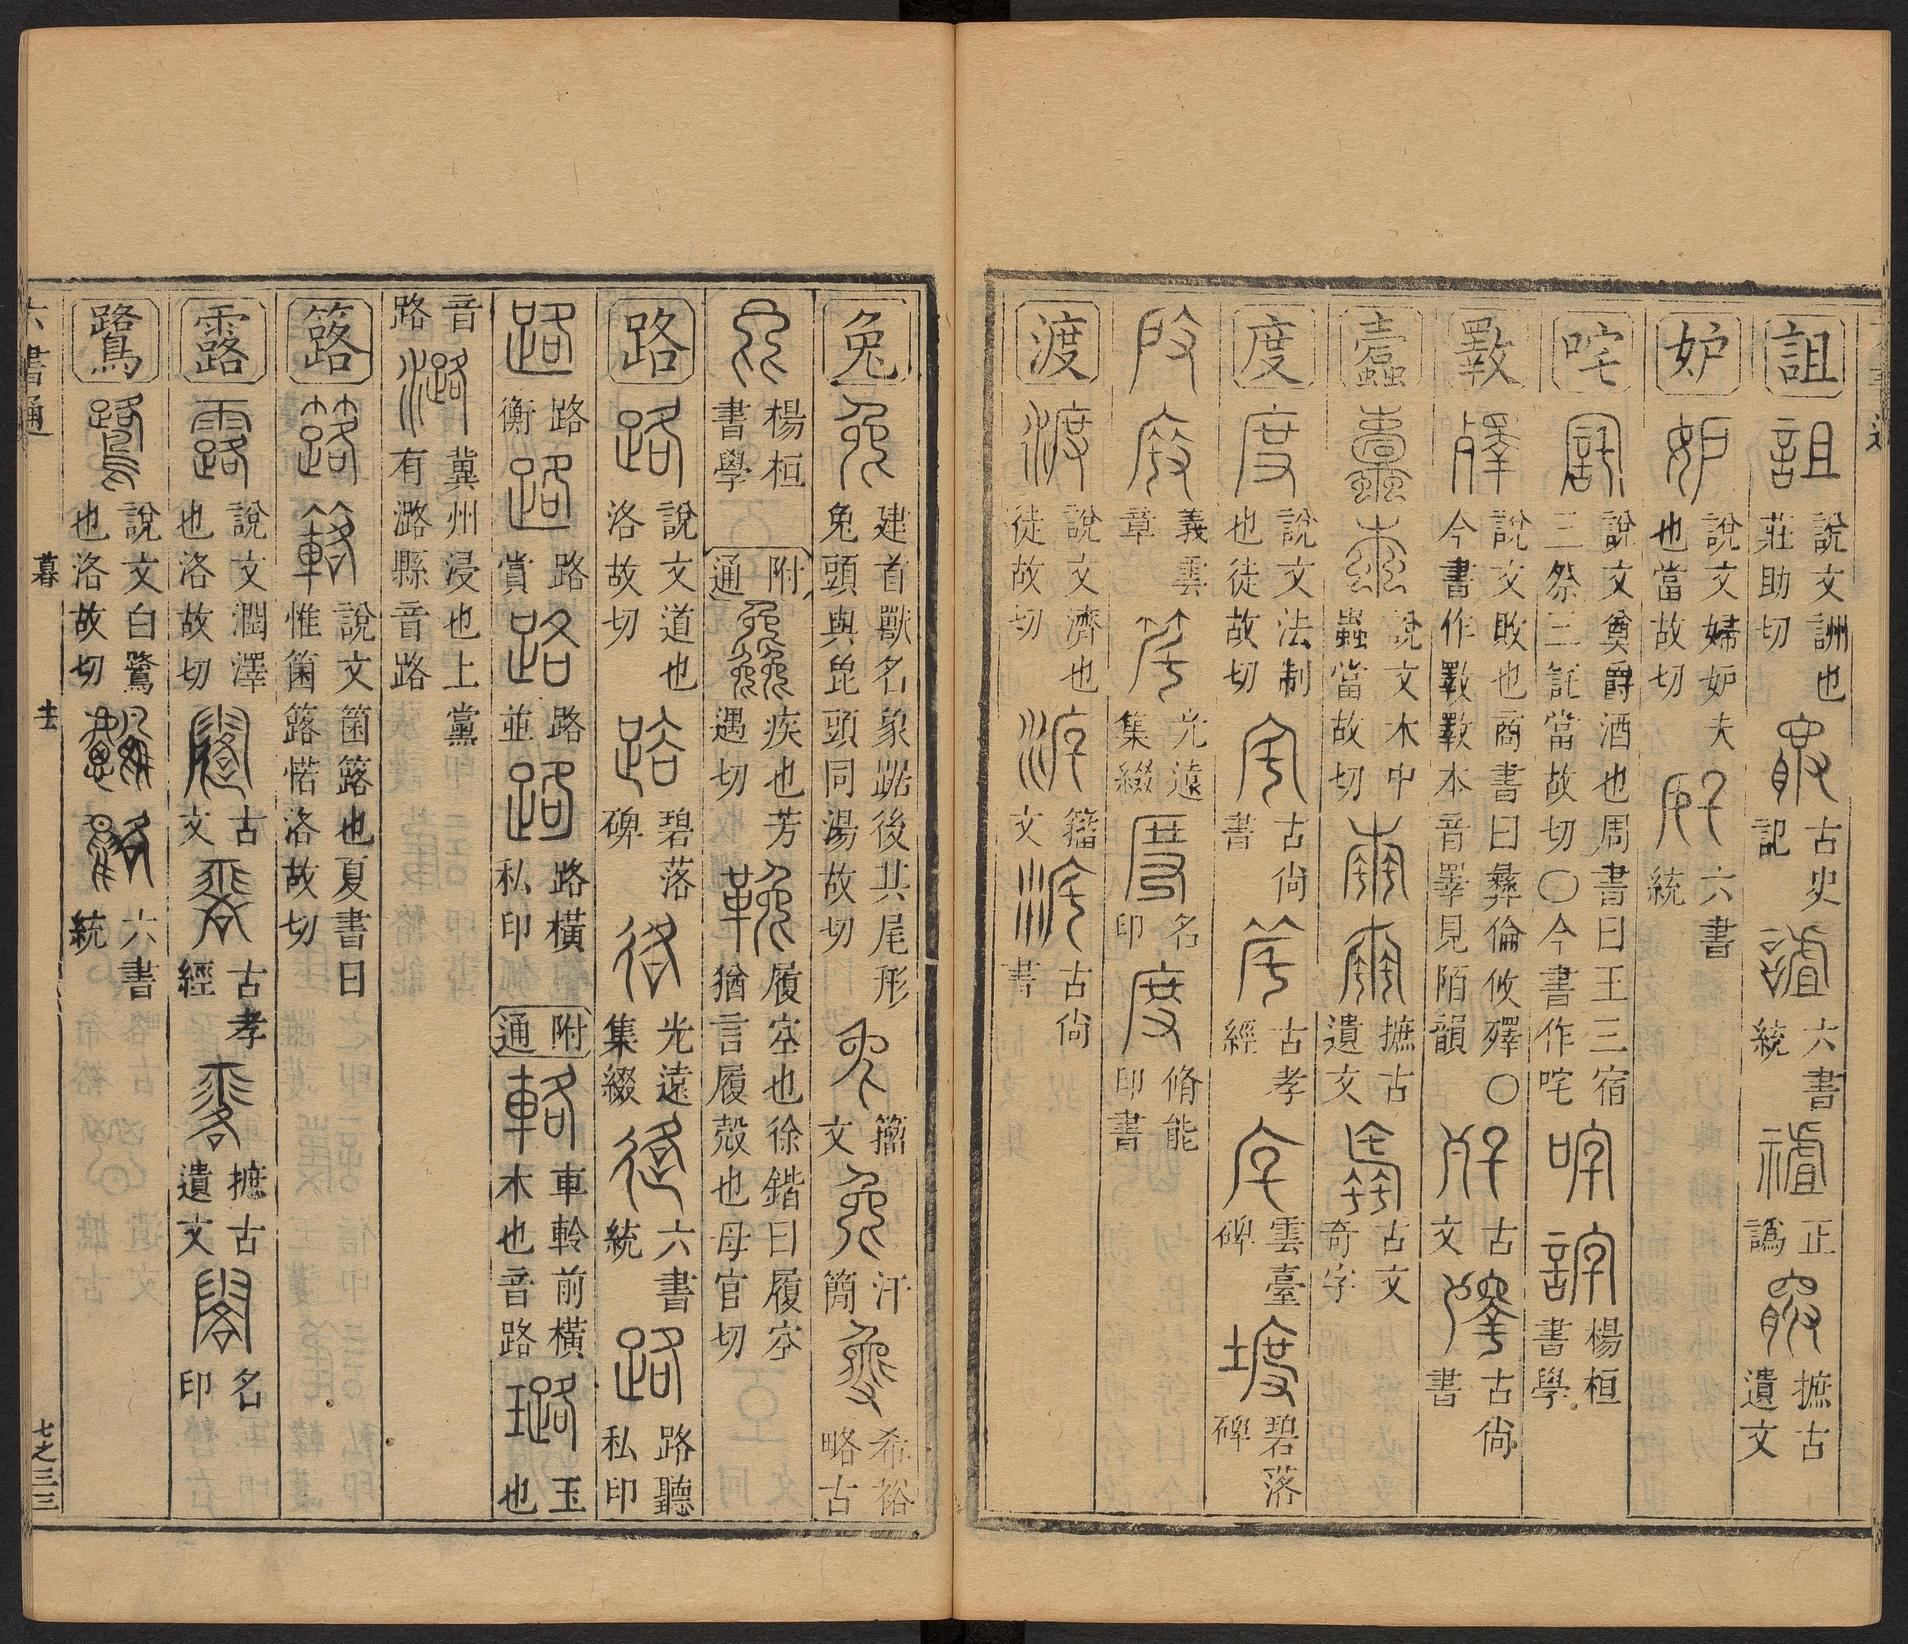 詛 詛 說文詶也莊助切 古史記 六書統 正譌 摭古遺文
妒 妒 說文婦妒夫也當故切 六書統
咤 說文奠爵酒也周書曰王三宿三祭三詫當故切〇今書作咤 楊桓書學
斁 說文敗也商書曰彝倫攸殬〇今書作斁斁本音睪見陌韻 古文 古尚書
蠹 說文木中蟲當故切 摭古遺文 古文奇字
度 度 說文法制也徒故切 古尚書 古孝經 雲臺碑 碧落碑
義雲章 光遠集綴 名印 脩能印書
渡 渡 說文濟也徒故切 籀文 古尚書
兔 建首獸名象踞後其尾形兔頭與㲋頭同湯故切 籀文 汗簡 希裕略古
楊桓書學 附通 疾也芳遇切 履空也徐鍇曰履空猶言履殼也母官切
路 路 說文道也洛故切 碧落碑 光遠集綴 六書統 路聽私印
路 路衡 路 路賞 路 路並 路 路橫私印 附通 輅 車軨前橫木也音路 璐 玉也
音路 潞 冀州浸也上黨有潞縣音路
簬 簬 簵 說文箘簬也夏書曰惟箘簬楛洛故切
露 露 說文潤澤也洛故切 古文 古孝經 摭古遺文 名印
鷺 鷺 說文白鷺也洛故切 六書統
六書通 暮 去 七之三三